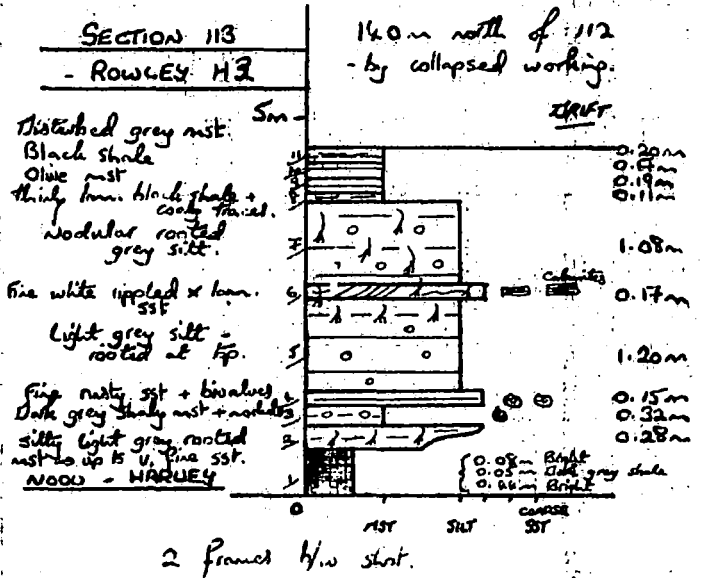 SECTION 113
- ROWLEY H3
140m north of 112
- by collapsed working.
DRIFT
5m
Disturbed grey mst.
Black shale
Olive mst
Thinly lam. black shale + coaly traces.
Nodular rooted
grey silt.
Fine white rippled x lam.
sst
Light grey silt -
rooted at top.
Fine rusty sst + bivalves
Dark grey shaly mst + nodules
Silty light grey rooted
mst → up to v. fine sst.
NOOD - HARVEY
11
7
6
5
4
3
2
1
0.20m
0.19m
0.11m
1.08m
Calamites
0.17m
1.20m
0.15m
0.32m
0.28m
0.08m Bright
0.05m Dark grey shale
Bright
0
MST
SILT
COARSE
SST
2 frames b/w shot.